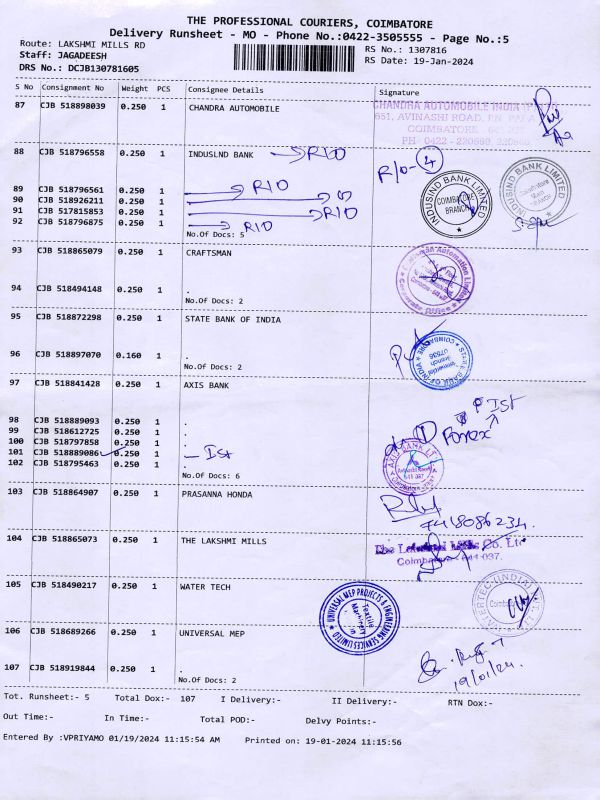 THE PROFESSIONAL COURIERS, COIMBATORE
Delivery Runsheet - MO - Phone No.:0422-3505555 - Page No.:5
Route: LAKSHMI MILLS RD
RS No.: 1307816
Staff: JAGADEESH
RS Date: 19-Jan-2024
DRS No.: DCJB130781605
S No Consignment No Weight PCS Consignee Details Signature
87 CJB 518898039 0.250 1 CHANDRA AUTOMOBILE
CHANDRA AUTOMOBILE INDIA
651, AVINASHI ROAD, P.N.
COIMBATORE
PH 0422 - 220
88 CJB 518796558 0.250 1 INDUSLND BANK R/O
R/O - 4
89 CJB 518796561 0.250 1 R/O
90 CJB 518926211 0.250 1
91 CJB 517815853 0.250 1 R/O
92 CJB 518796875 0.250 1 R/O
No.Of Docs: 5
INDUSIND BANK LIMITED
COIMBATORE
BRANCH
INDUSIND BANK LIMITED
93 CJB 518865079 0.250 1 CRAFTSMAN
94 CJB 518494148 0.250 1 .
No.Of Docs: 2
Automation Limited
95 CJB 518872298 0.250 1 STATE BANK OF INDIA
96 CJB 518897070 0.160 1 .
No.Of Docs: 2
STATE BANK OF INDIA
COIMBATORE
97 CJB 518841428 0.250 1 AXIS BANK
Ist
98 CJB 518889093 0.250 1 .
99 CJB 518612725 0.250 1 .
Forex
100 CJB 518797858 0.250 1 .
101 CJB 518889086 0.250 1 . Ist
102 CJB 518795463 0.250 1 .
No.Of Docs: 6
AXIS BANK LT
641 037
103 CJB 518864907 0.250 1 PRASANNA HONDA
7418086234.
104 CJB 518865073 0.250 1 THE LAKSHMI MILLS
The Lakshmi Mills Co. Ltd
Coimbatore - 641 037.
105 CJB 518490217 0.250 1 WATER TECH
UNIVERSAL MEP PROJECTS & ENGINEERING SERVICES LIMITED
Textile
Machinery
106 CJB 518689266 0.250 1 UNIVERSAL MEP
107 CJB 518919844 0.250 1 .
No.Of Docs: 2
19/01/24.
Tot. Runsheet:- 5 Total Dox:- 107 I Delivery:- II Delivery:- RTN Dox:-
Out Time:- In Time:- Total POD:- Delvy Points:-
Entered By :VPRIYAMO 01/19/2024 11:15:54 AM Printed on: 19-01-2024 11:15:56